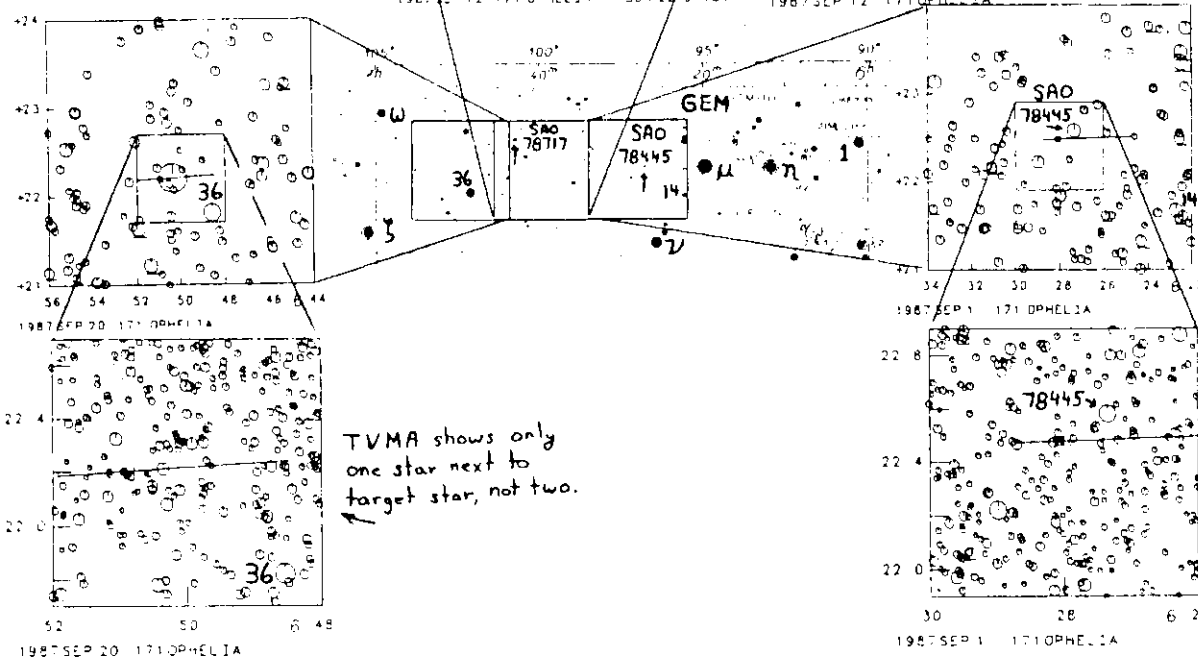 1987 SEP 12 171 OPHELIA
+24
+23
+22
+21
36
56 54 52 50 48 6 44
1987 SEP 20 171 OPHELIA
105°
100°
40m
95°
20m
90°
6h
GEM
ω
ζ
36
SAO
78717
SAO
78445
14
μ
η
1
ν
+23
+22
+21
SAO
78445
14
34 32 30 28 26 6
1987 SEP 1 171 OPHELIA
22 4
22 0
36
52 50 6 48
1987 SEP 20 171 OPHELIA
TVMA shows only
one star next to
target star, not two.
22 8
22 4
22 0
78445
30 28 6
1987 SEP 1 171 OPHELIA